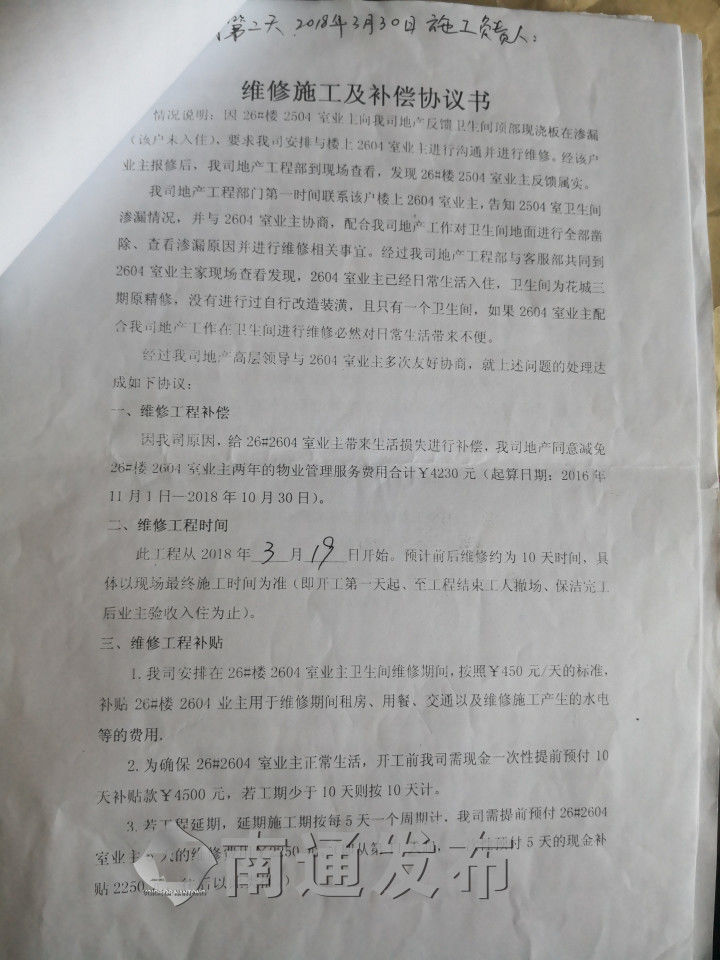 第二天 2018年3月30日 施工负责人：
维修施工及补偿协议书
情况说明：因 26#楼 2504 室业主向我司地产反馈卫生间顶部现浇板在渗漏
（该户未入住），要求我司安排与楼上 2604 室业主进行沟通并进行维修。经该户
业主报修后，我司地产工程部到现场查看，发现 26#楼 2504 室业主反馈属实。
我司地产工程部门第一时间联系该户楼上 2604 室业主，告知 2504 室卫生间
渗漏情况，并与 2604 室业主协商，配合我司地产工作对卫生间地面进行全部凿
除、查看渗漏原因并进行维修相关事宜。经过我司地产工程部与客服部共同到
2604 室业主家现场查看发现，2604 室业主已经日常生活入住，卫生间为花城三
期原精修，没有进行过自行改造装潢，且只有一个卫生间，如果 2604 室业主配
合我司地产工作在卫生间进行维修必然对日常生活带来不便。
经过我司地产高层领导与 2604 室业主多次友好协商，就上述问题的处理达
成如下协议：
一、维修工程补偿
因我司原因，给 26#2604 室业主带来生活损失进行补偿，我司地产同意减免
26#楼 2604 室业主两年的物业管理服务费用合计￥4230 元（起算日期：2016 年
11 月 1 日—2018 年 10 月 30 日）。
二、维修工程时间
此工程从 2018 年 3 月 19 日开始。预计前后维修约为 10 天时间，具
体以现场最终施工时间为准（即开工第一天起、至工程结束工人撤场、保洁完工
后业主验收入住为止）。
三、维修工程补贴
1. 我司安排在 26#楼 2604 室业主卫生间维修期间，按照￥450 元/天的标准，
补贴 26#楼 2604 业主用于维修期间租房、用餐、交通以及维修施工产生的水电
等的费用.
2. 为确保 26#2604 室业主正常生活，开工前我司需现金一次性提前预付 10
天补贴款￥4500 元，若工期少于 10 天则按 10 天计。
3. 若工程延期，延期施工期按每 5 天一个周期计，我司需提前预付 26#2604
室业主 天的维修 2250 元 从第 预付 5 天的现金补
贴 2250 后以
南通发布